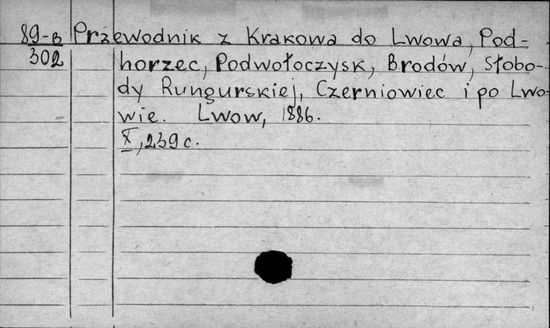 89-в Przewodnik z Krakowa do Lwowa, Pod-
302 horzec, Podwołoczysk, Brodów, Słobo-
dy Rungurskiej, Czerniowiec i po Lwo-
wie. Lwow, 1886.
X, 239 c.